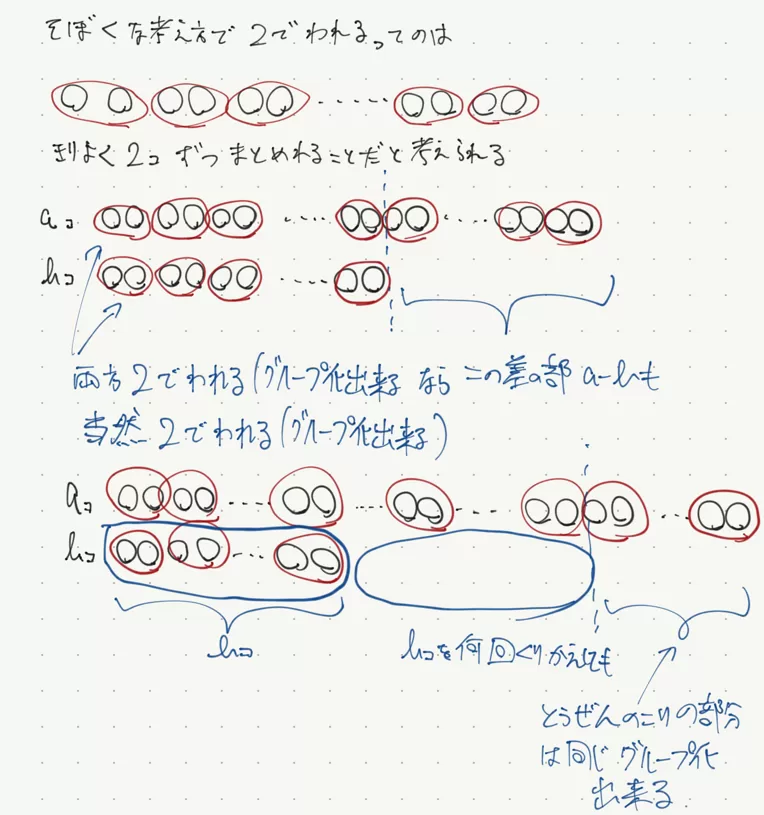 そぼくな考え方で 2でわれるってのは
きりよく 2コ ずつ まとめれることだと考えられる
aコ
bコ
両方 2でわれる(グループ化出来る なら この差の部 a-bも
当然 2でわれる(グループ化出来る)
aコ
bコ
bコ
bコを何回くりかえしても
とうぜんのこりの部分
は同じ グループ化
出来る